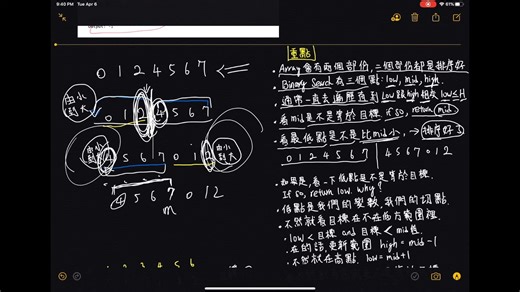 9:40 PM Tue Apr 6
61%
0 1 2 4 5 6 7
由小到大
0 1 2 4 5 6 7
由小到大
4 5 6 7 0 1 2
由小到大
4 5 6 7 0 1 2
m
重點
• Array 會有兩個部份, 二個部份都是排序好
• Binary Search 有三個點: low, mid, high.
• 通常一直去遍歷直到 low 跟 high 相交 low ≤ H
• 看 mid 是不是等於目標 if so, return mid
• 看最低點是不是比 mid 小, → 排序好
0 1 2 4 5 6 7 | 4 5 6 7 0 1 2
• 如果是, 看一下低點是不是等於目標.
If so, return low. why?
• 低點是我們的變數, 我們的切點.
• 不然就看目標在不在低方範圍裡.
• low < 目標 and 目標 < mid值
在的話, 更新範圍 high = mid - 1
• 不然就在高點. low = mid + 1